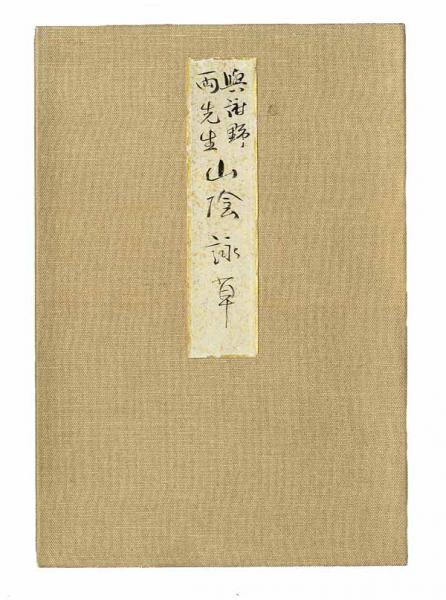 與謝野
両先生
山陰詠草